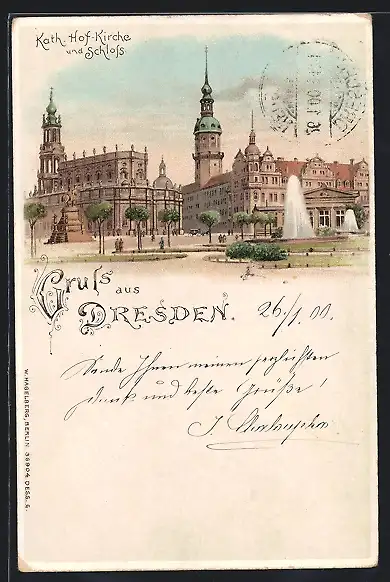 Kath. Hof-Kirche
und Schloß
Gruß aus
DRESDEN.
26/1. 00.
Sende Ihnen meinen herzlichsten
Dank und beste Grüße!
J.
W. HAGELBERG, BERLIN 36904 DESS. 6.